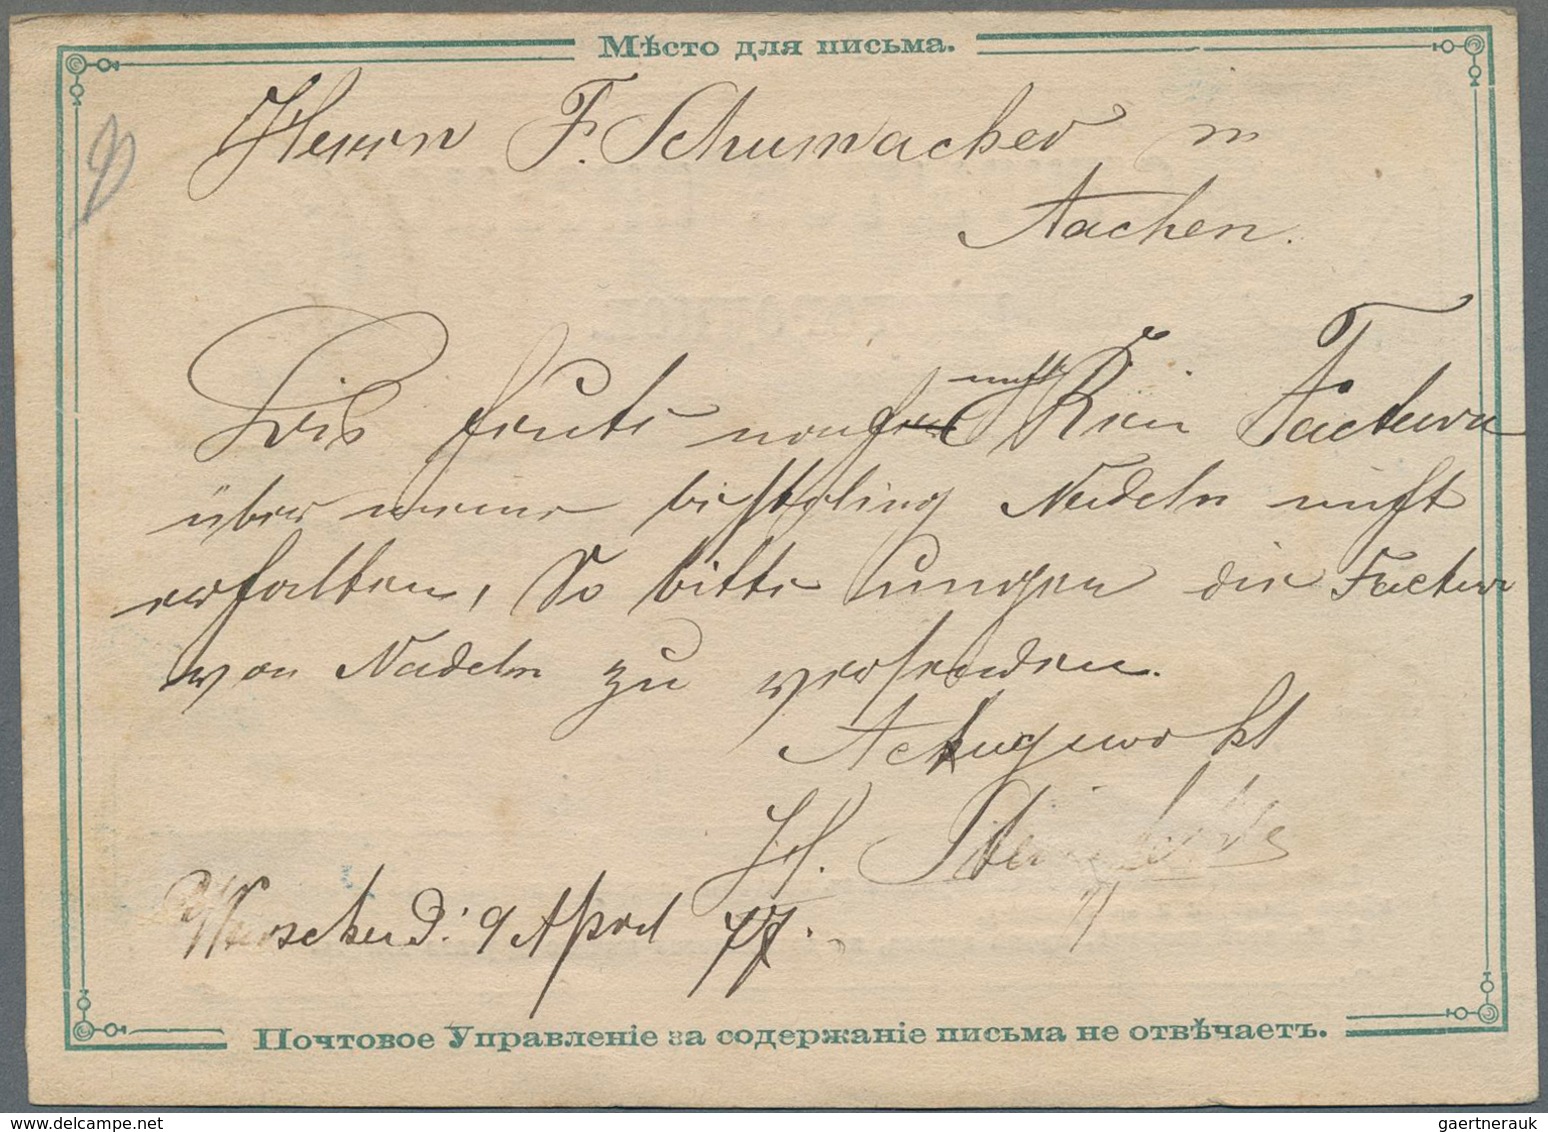 Мѣсто для письма.
Herrn F. Schumacher in
Aachen.
Bis heute noch nicht Kein Factura
über meine bestelung Nadeln nicht
erhalten, So bitte die Factura
von Nadeln zu versenden.
d. 9 April 77.
Почтовое Управленіе за содержаніе письма не отвѣчаетъ.
gaertnerauk